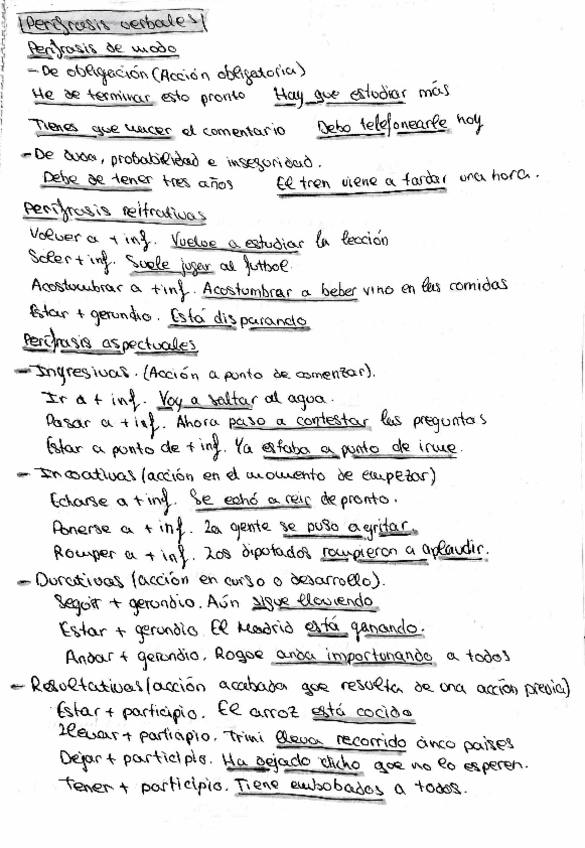 Perífrasis verbales
Perífrasis de modo
- De obligación (Acción obligatoria)
He de terminar esto pronto Hay que estudiar más
Tienes que hacer el comentario Debo telefonearle hoy
- De duda, probabilidad e inseguridad.
Debe de tener tres años El tren viene a tardar una hora.
Perífrasis reitrativas
Volver a + inf. Vuelve a estudiar la lección
Soler + inf. Suele jugar al futbol.
Acostumbrar a + inf. Acostumbrar a beber vino en las comidas
Estar + gerundio. Está disparando
Perífrasis aspectuales
- Ingresivas. (Acción a punto de comenzar).
Ir a + inf. Voy a saltar al agua.
Pasar a + inf. Ahora paso a contestar las preguntas
Estar a punto de + inf. Ya estaba a punto de irme.
- Incoativas (acción en el momento de empezar)
Echarse a + inf. Se echó a reir de pronto.
Ponerse a + inf. La gente se puso a gritar.
Romper a + inf. Los diputados rompieron a aplaudir.
- Durativas (acción en curso o desarrollo).
Seguir + gerundio. Aún sigue lloviendo
Estar + gerundio. El Madrid está ganando.
Andar + gerundio. Roque anda importunando a todos
- Resultativas (acción acabada que resulta de una acción previa)
Estar + participio. El arroz está cocido
Llevar + participio. Trini lleva recorrido cinco paises
Dejar + participio. Ha dejado dicho que no lo esperen.
Tener + participio. Tiene embobados a todos.